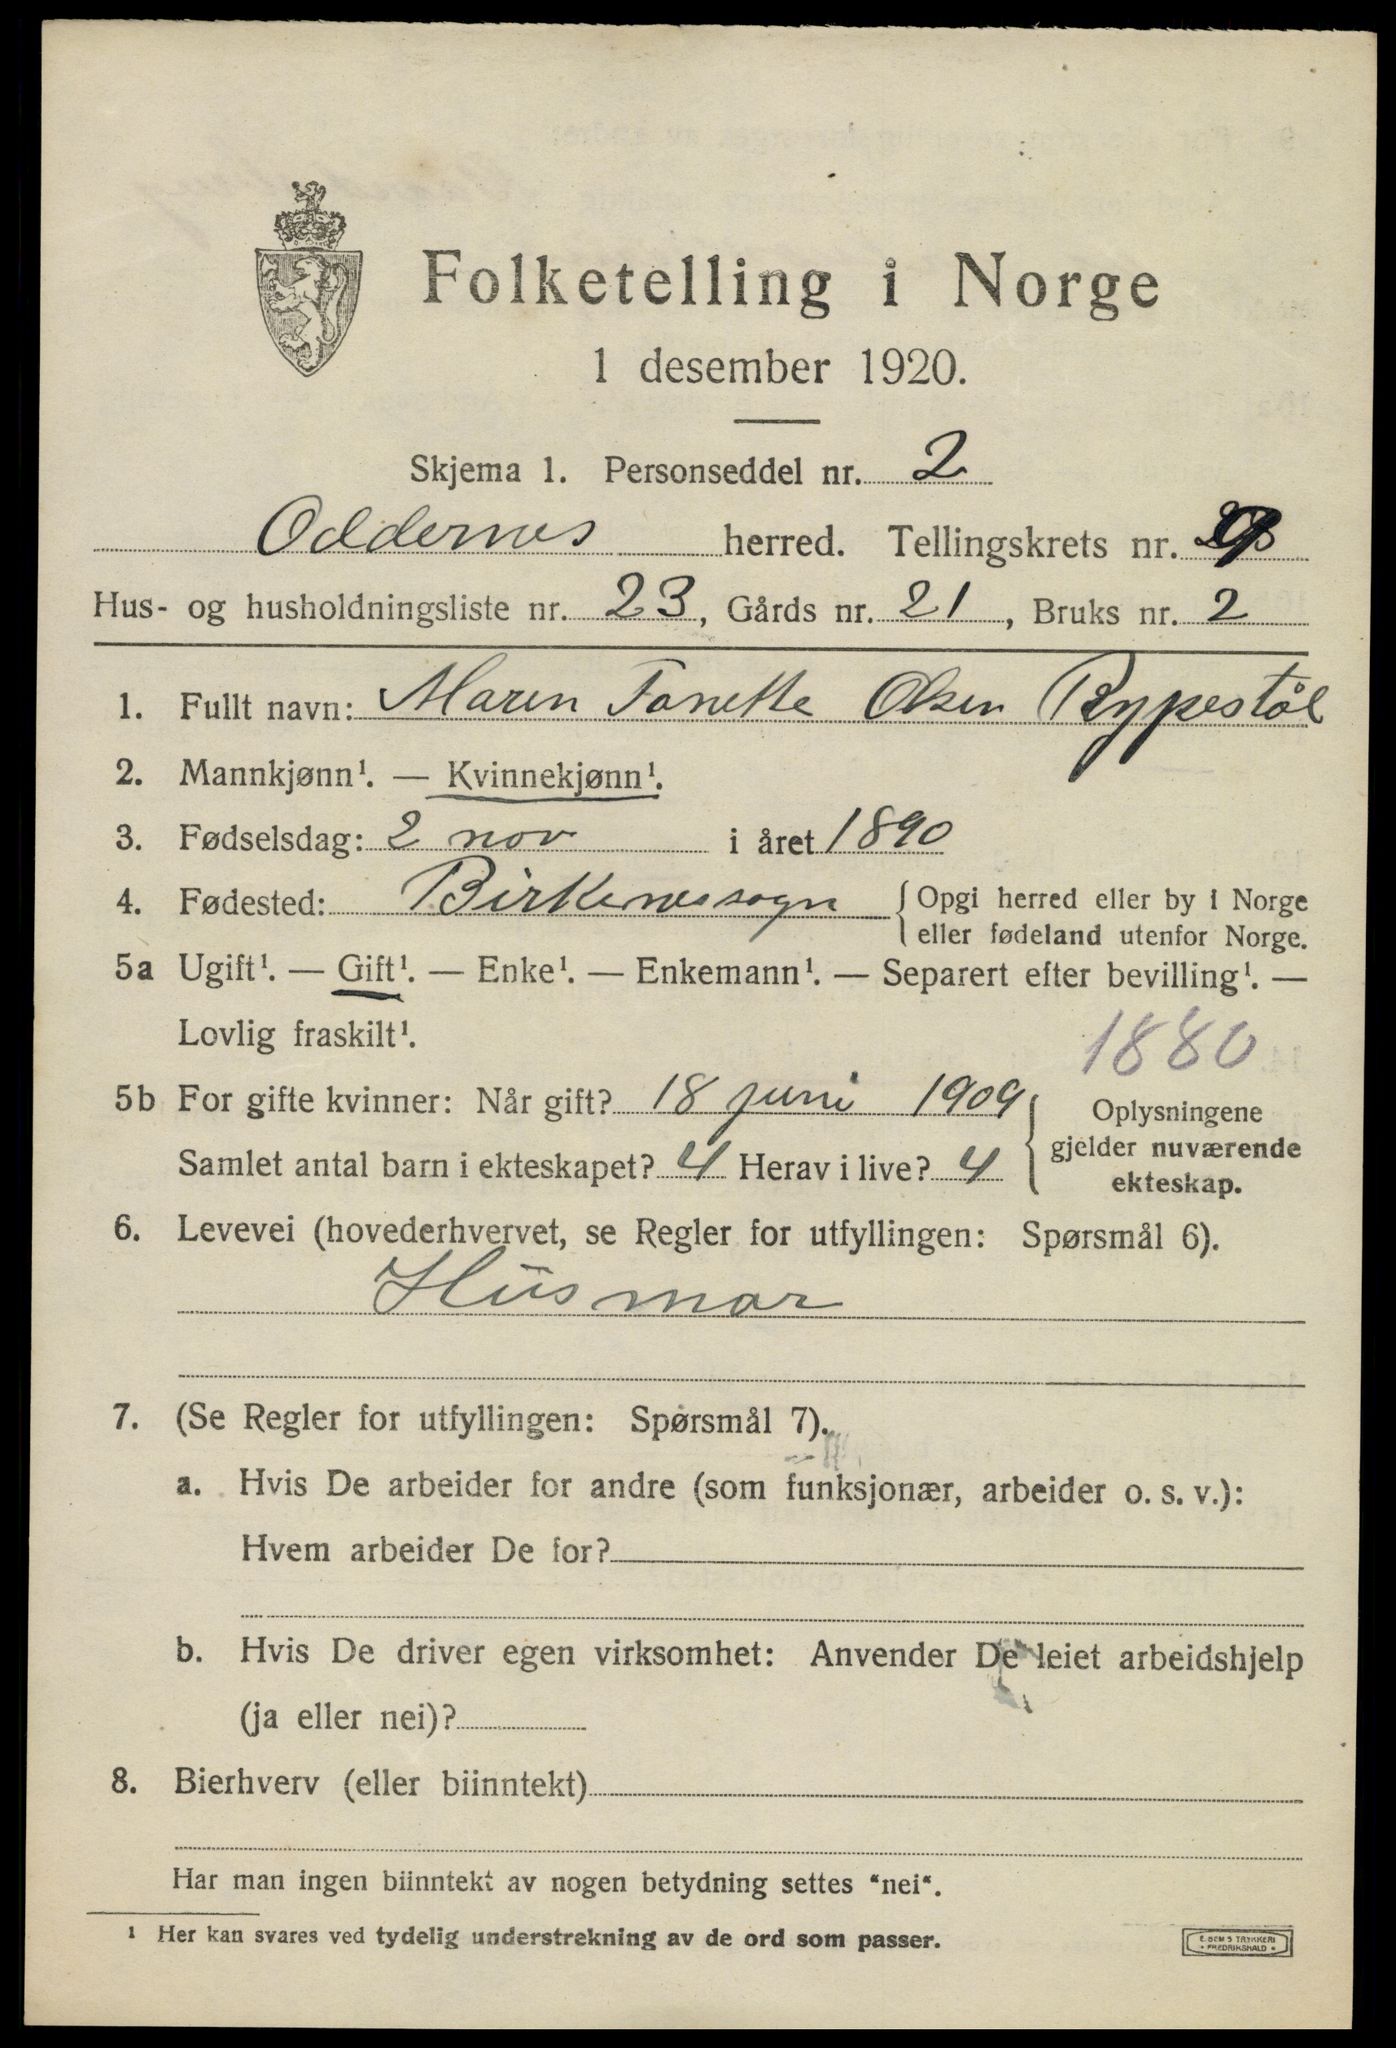 Folketelling i Norge
1 desember 1920.
Skjema 1. Personseddel nr. 2
Oddernes herred. Tellingskrets nr.
Hus- og husholdningsliste nr. 23, Gårds nr. 21, Bruks nr. 2
1. Fullt navn: Maren Tonette Olsen Rypestøl
2. Mannkjønn¹. — Kvinnekjønn¹.
3. Fødselsdag: 2 nov i året 1890
4. Fødested: Birkenessogn { Opgi herred eller by i Norge
eller fødeland utenfor Norge.
5a Ugift¹. — Gift¹. — Enke¹. — Enkemann¹. — Separert efter bevilling¹. —
Lovlig fraskilt¹.
1880
5b For gifte kvinner: Når gift? 18 juni 1909
Samlet antal barn i ekteskapet? 4 Herav i live? 4
{ Oplysningene
gjelder nuværende
ekteskap.
6. Levevei (hovederhvervet, se Regler for utfyllingen: Spørsmål 6).
Husmor
7. (Se Regler for utfyllingen: Spørsmål 7).
a. Hvis De arbeider for andre (som funksjonær, arbeider o. s. v.):
Hvem arbeider De for?
b. Hvis De driver egen virksomhet: Anvender De leiet arbeidshjelp
(ja eller nei)?
8. Bierhverv (eller biinntekt)
Har man ingen biinntekt av nogen betydning settes "nei".
¹ Her kan svares ved tydelig understrekning av de ord som passer.
E. SEM'S TRYKKERI
• FREDRIKSHALD •